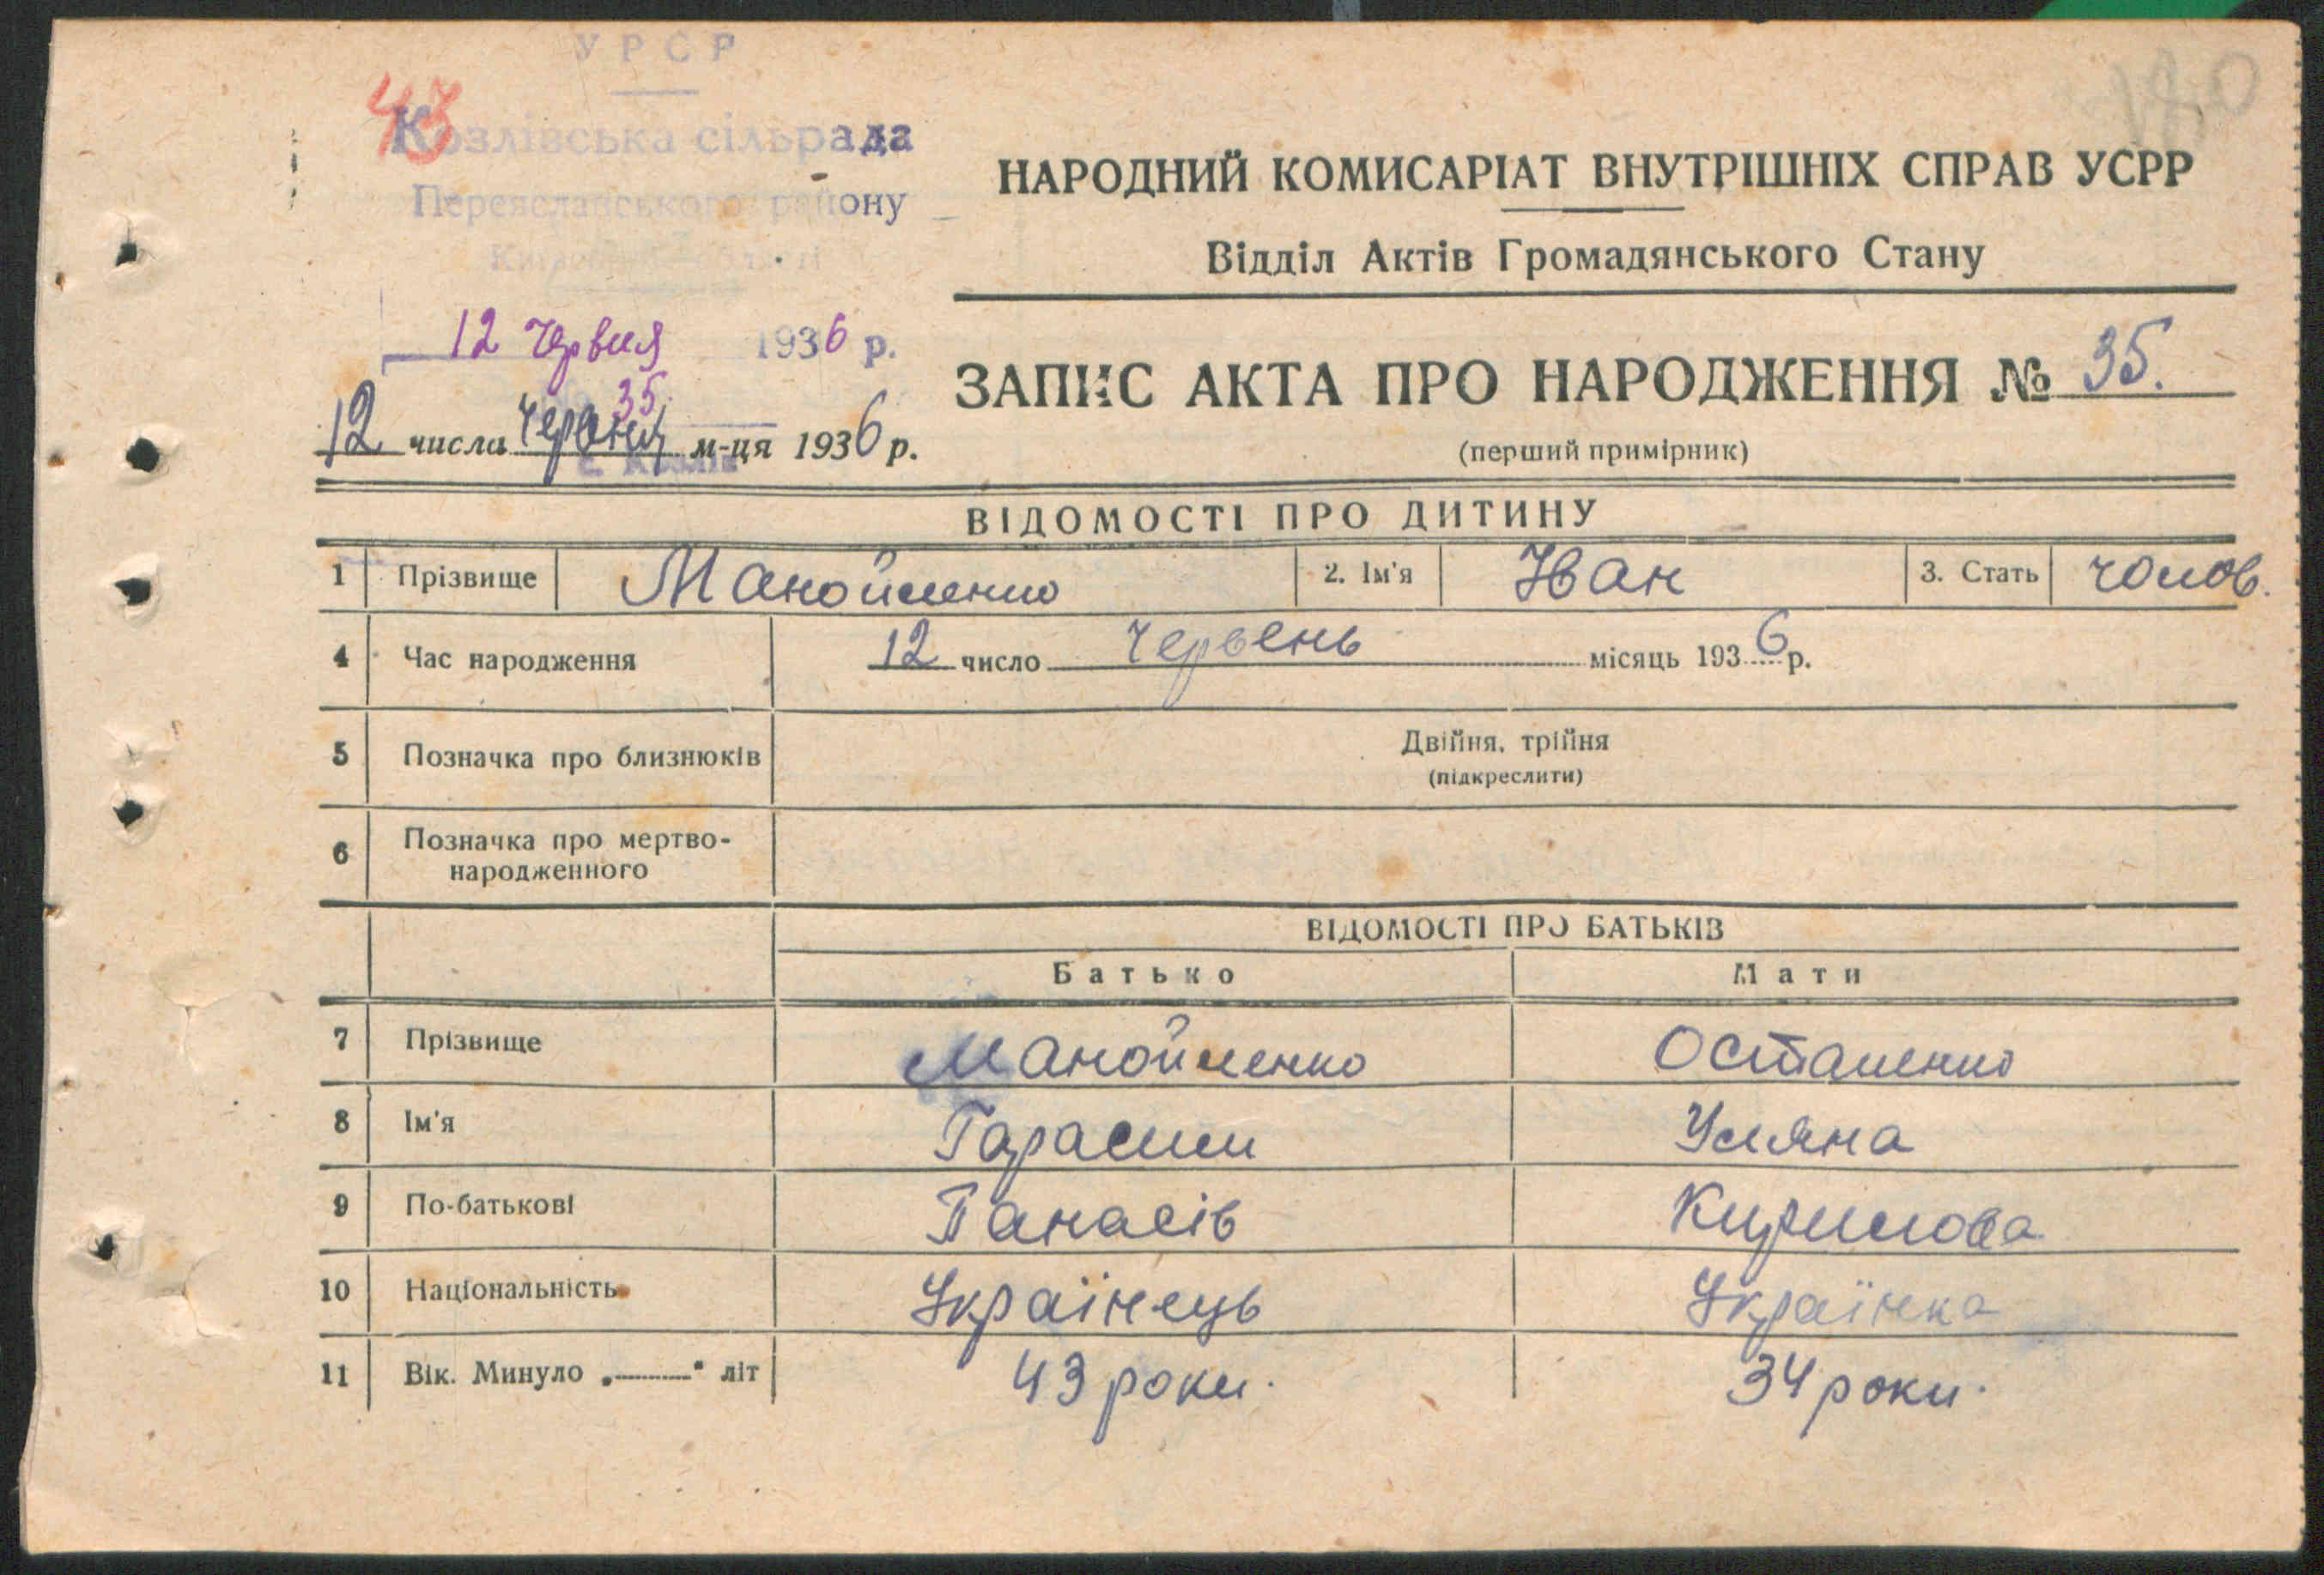 УРСР
43
Козлівська сільрада
Переяславського району
Київської області
12 Червня 1936 р.
35.
12 числа Червня м-ця 1936 р.
с. Козлів
НАРОДНИЙ КОМИСАРІАТ ВНУТРІШНІХ СПРАВ УСРР
Відділ Актів Громадянського Стану
ЗАПИС АКТА ПРО НАРОДЖЕННЯ № 35.
(перший примірник)
ВІДОМОСТІ ПРО ДИТИНУ
1 Прізвище Манойленко 2. Ім'я Іван 3. Стать чолов.
4 Час народження 12 число Червень місяць 1936 р.
5 Позначка про близнюків Двійня, трійня
(підкреслити)
6 Позначка про мертво-
народженного
ВІДОМОСТІ ПРО БАТЬКІВ
Батько Мати
7 Прізвище Манойленко Осташенко
8 Ім'я Гарасим Уляна
9 По-батькові Панасів Кирилова
10 Національність Українець Українка
11 Вік. Минуло „ " літ 43 роки. 34 роки.